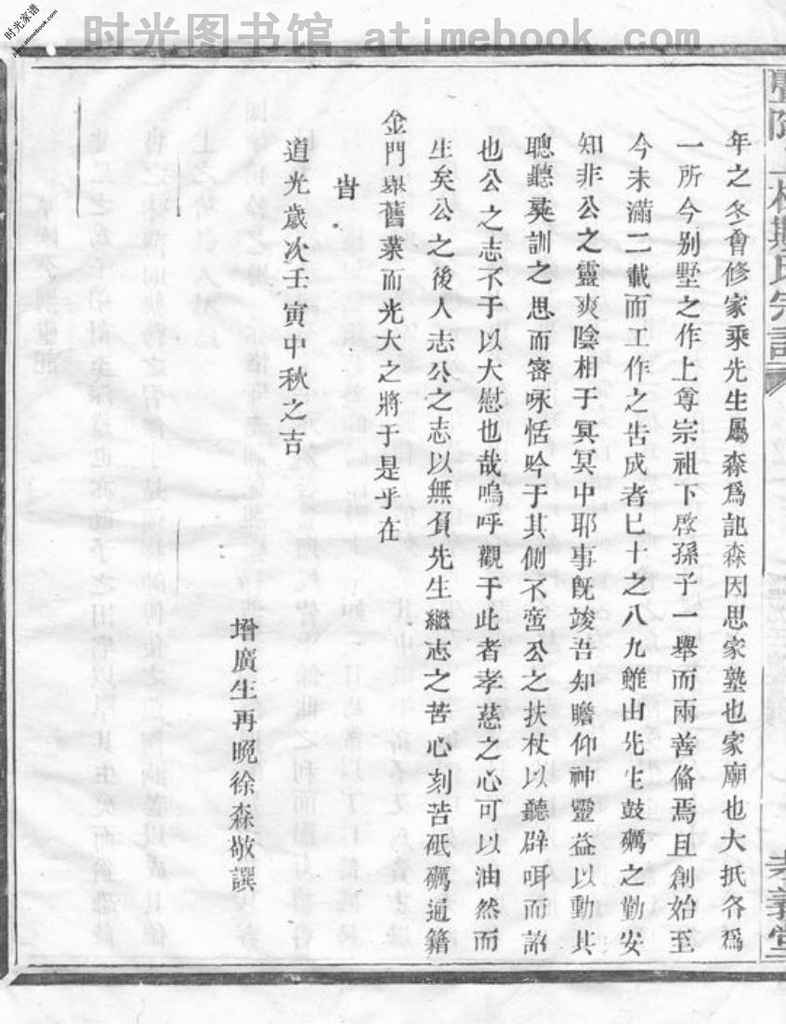 时光图书馆 atimebook.com
时光家谱
www.atimebook.com
年之冬會修家乘先生屬森爲記森因思家塾也家廟也大扺各爲
一所今别墅之作上尊宗祖下啓孫子一舉而兩善俻焉且創始至
今未滿二載而工作之告成者已十之八九雖由先生鼓礪之勤安
知非公之靈爽陰相于冥冥中耶事旣竣吾知瞻仰神靈益以動其
聰聽彞訓之思而宻咏恬吟于其側不啻公之扶杖以聽辟咡而詔
也公之志不于以大慰也哉嗚呼觀于此者孝慈之心可以油然而
生矣公之後人志公之志以無負先生繼志之苦心刻苦砥礪通籍
金門舉舊業而光大之將于是乎在
旹
道光歲次壬寅中秋之吉
增廣生再晚徐森敬譔
氏宗譜
孝義堂